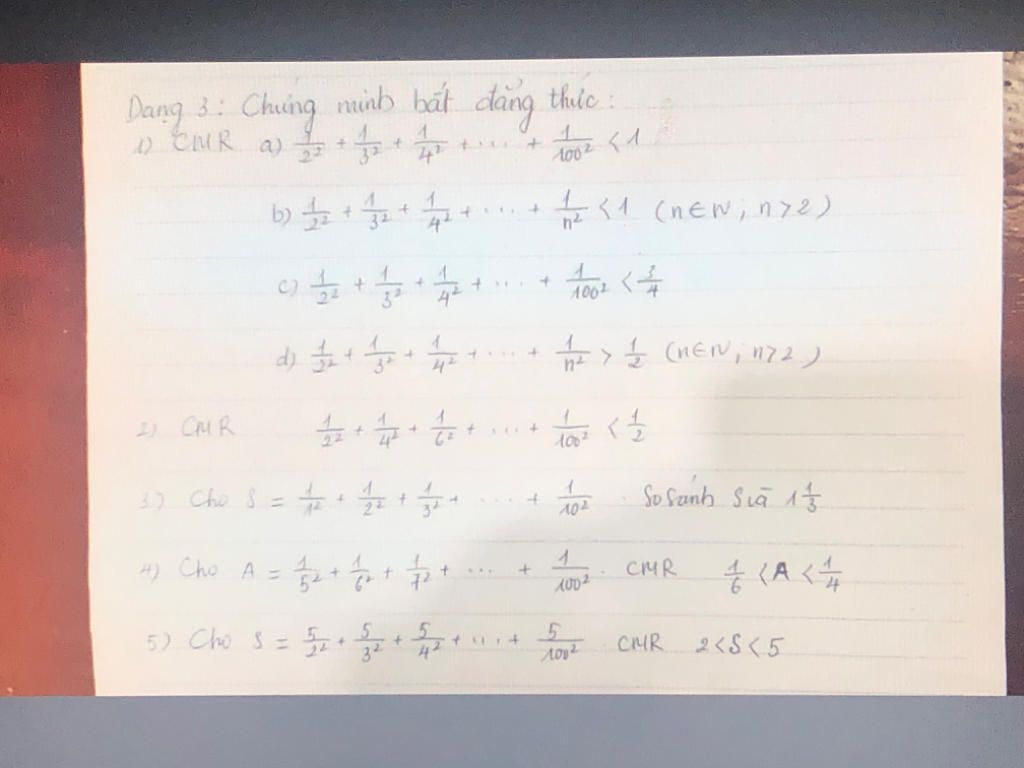 Dạng 3: Chứng minh bất đẳng thức:
1) CMR a) 1/2² + 1/3² + 1/4² + ... + 1/100² < 1
b) 1/2² + 1/3² + 1/4² + ... + 1/n² < 1 (n∈N; n>2)
c) 1/2² + 1/3² + 1/4² + ... + 1/100² < 3/4
d) 1/2² + 1/3² + 1/4² + ... + 1/n² > 1/2 (n∈N; n>2)
2) CMR 1/2² + 1/4² + 1/6² + ... + 1/100² < 1/2
3) Cho S = 1/1² + 1/2² + 1/3² + ... + 1/10². So sánh S và 1 1/3
4) Cho A = 1/5² + 1/6² + 1/7² + ... + 1/100². CMR 1/6 < A < 1/4
5) Cho S = 5/2² + 5/3² + 5/4² + ... + 5/100². CMR 2 < S < 5